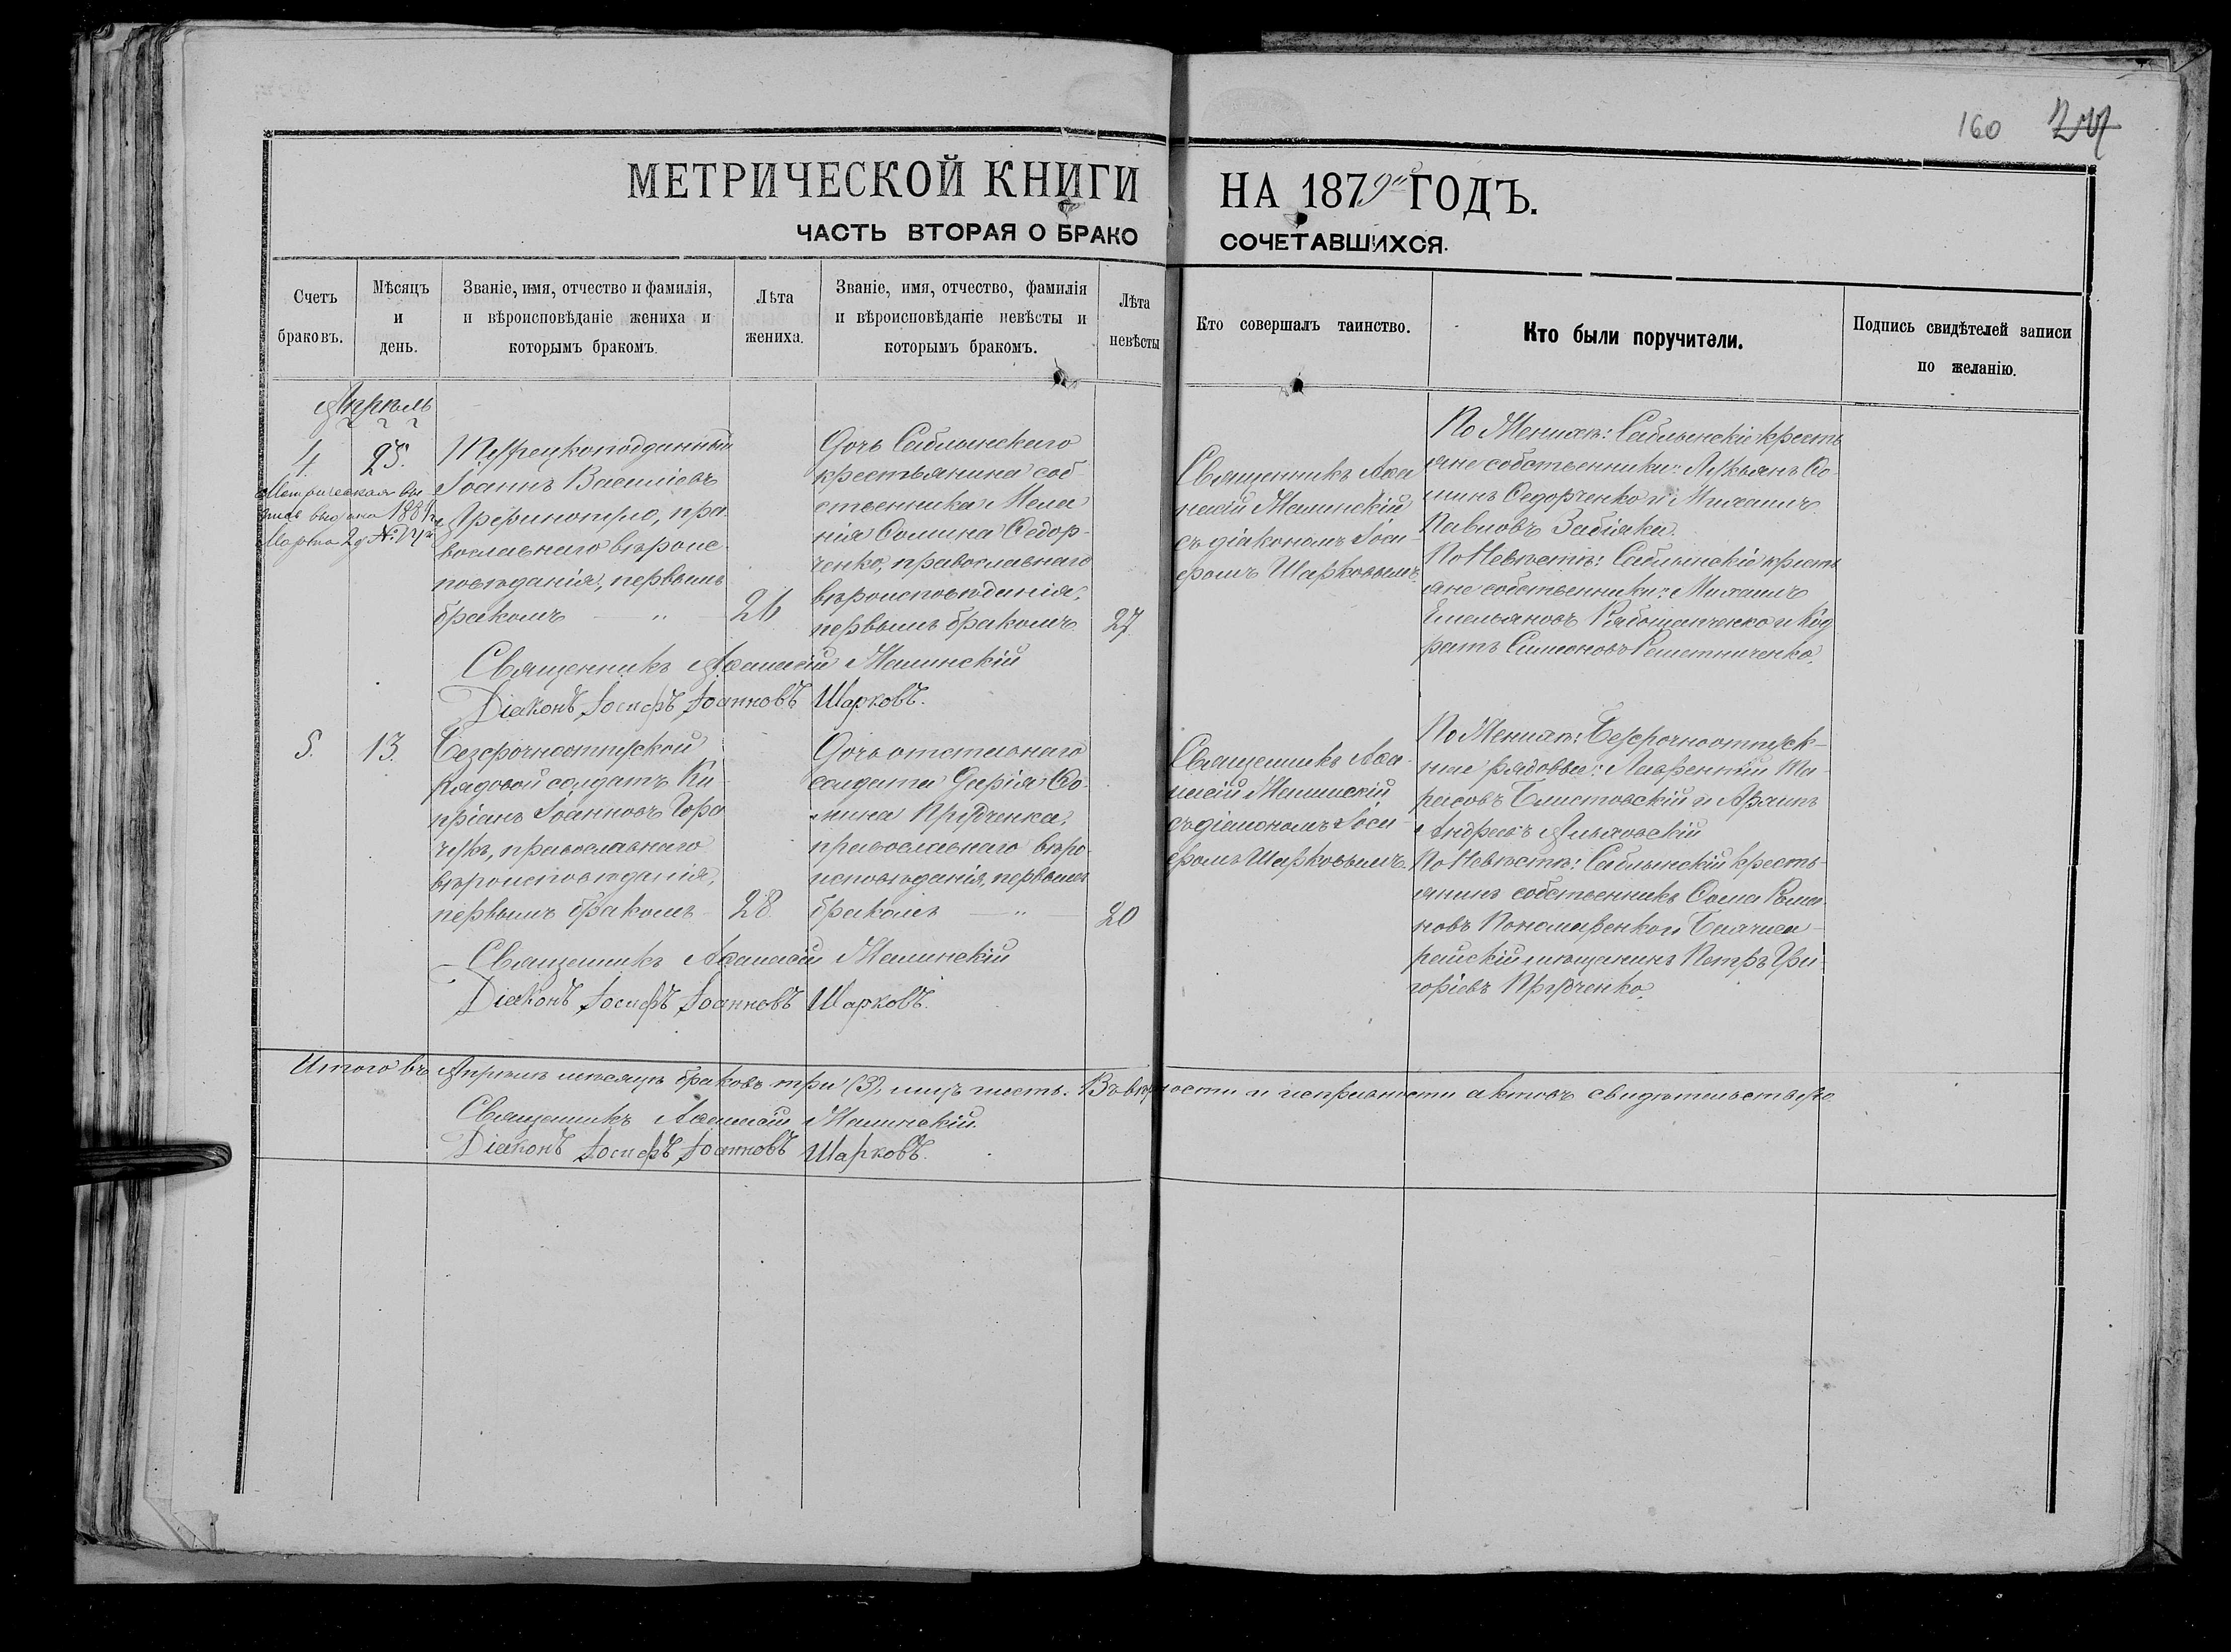 160
МЕТРИЧЕСКОЙ КНИГИ НА 1879й ГОДЪ.
ЧАСТЬ ВТОРАЯ О БРАКОСОЧЕТАВШИХСЯ.
Счетъ браковъ.
Мѣсяцъ и день.
Званіе, имя, отчество и фамилія,
и вѣроисповѣданіе жениха и
которымъ бракомъ.
Лѣта жениха.
Званіе, имя, отчество, фамилія
и вѣроисповѣданіе невѣсты и
которымъ бракомъ.
Лѣта невѣсты
Кто совершалъ таинство.
Кто были поручители.
Подпись свидѣтелей записи
по желанію.
Апрѣль
4. 25.
Метрическая вы
пись выдана 1881 г.
Марта 29 №
Турецкоподданный
Іоаннъ Василіевъ
пра
вославнаго вѣроис
повѣданія, первымъ
бракомъ — " —
26
Дочь Саблынскаго
крестьянина соб
ственника Мела
нія Ѳомина Ѳедор-
ченко, православнаго
вѣроисповѣданія,
первымъ бракомъ
27
Священникъ Аѳа
насій Малинскій
съ діакономъ Іоси
фомъ Шарковымъ.
По Женихѣ: Саблынскіе кресть
яне собственники: Лукьянъ Ѳо
минъ Ѳедорченко и Михаилъ
Павловъ Забіяка.
По Невѣстѣ: Саблынскіе кресть
яне собственники: Михаилъ
Емельяновъ Рябошапченко и Код
ратъ Симеоновъ Решетниченко.
Священникъ Аѳанасій Малинскій
Діаконъ Іосифъ Іоанновъ Шарковъ.
5. 13.
Безсрочноотпускной
рядовой солдатъ Ки
пріанъ Іоанновъ Гора
чукъ, православнаго
вѣроисповѣданія,
первымъ бракомъ —
28
Дочь отставнаго
солдата Дарія Ѳо
мина Прудченка,
православнаго вѣро
исповѣданія, первымъ
бракомъ — " —
20
Священникъ Аѳа
насій Малинскій
съ діакономъ Іоси
фомъ Шарковымъ.
По Женихѣ: Безсрочноотпуск-
ные рядовые: Лаврентій Та
расовъ Блистовскій и
Андреевъ
По Невѣстѣ: Саблынскій кресть-
янинъ собственникъ Ѳома Рома
новъ Пономаренко и Бахчиса
райскій мѣщанинъ Петръ Гри
горіевъ Прудченко.
Священникъ Аѳанасій Малинскій
Діаконъ Іосифъ Іоанновъ Шарковъ.
Итого въ Апрѣлѣ мѣсяцѣ браковъ три (3), лицъ шесть. Въ вѣрности и исправности актовъ свидѣтельствую
Священникъ Аѳанасій Малинскій
Діаконъ Іосифъ Іоанновъ Шарковъ.